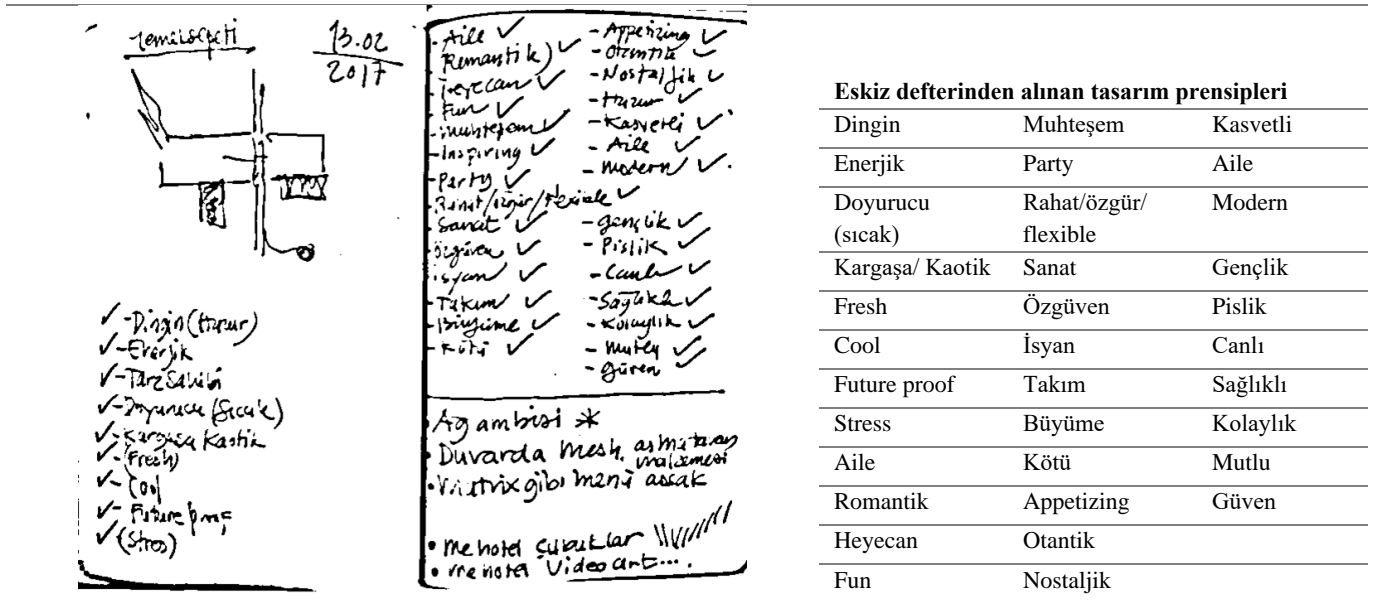 Yemeksepeti
13.02
2017
✓-Dingin (Huzur)
✓-Enerjik
✓-Tarz Sahibi
✓-Doyurucu (Sıcak)
✓-Kargaşa Kaotik
✓-(Fresh)
✓-Cool
✓-Future proof
✓(Stres)
-Aile ✓
Romantik) ✓
Heyecan ✓
Fun ✓
Muhteşem ✓
-Inspiring ✓
-Party ✓
Rahat/özgür/flexible ✓
Sanat ✓
özgüven ✓
isyan ✓
-Takım ✓
-Büyüme ✓
-Kötü ✓
-Appetizing ✓
-Otantik ✓
-Nostaljik ✓
-Huzur ✓
-Kasvetli ✓
-Aile ✓
-Modern ✓
-gençlik ✓
-Pislik ✓
-Canlı ✓
-Sağlıklı ✓
-Kolaylık ✓
-mutlu ✓
-güven ✓
•Ag ambiasi *
•Duvarda mesh, asma tavan
malzemesi
•Matrix gibi menü assak
•me hotel Çubuklar
•me hotel Video art....
Eskiz defterinden alınan tasarım prensipleri
Dingin Muhteşem Kasvetli
Enerjik Party Aile
Doyurucu Rahat/özgür/ Modern
(sıcak) flexible
Kargaşa/ Kaotik Sanat Gençlik
Fresh Özgüven Pislik
Cool İsyan Canlı
Future proof Takım Sağlıklı
Stress Büyüme Kolaylık
Aile Kötü Mutlu
Romantik Appetizing Güven
Heyecan Otantik
Fun Nostaljik